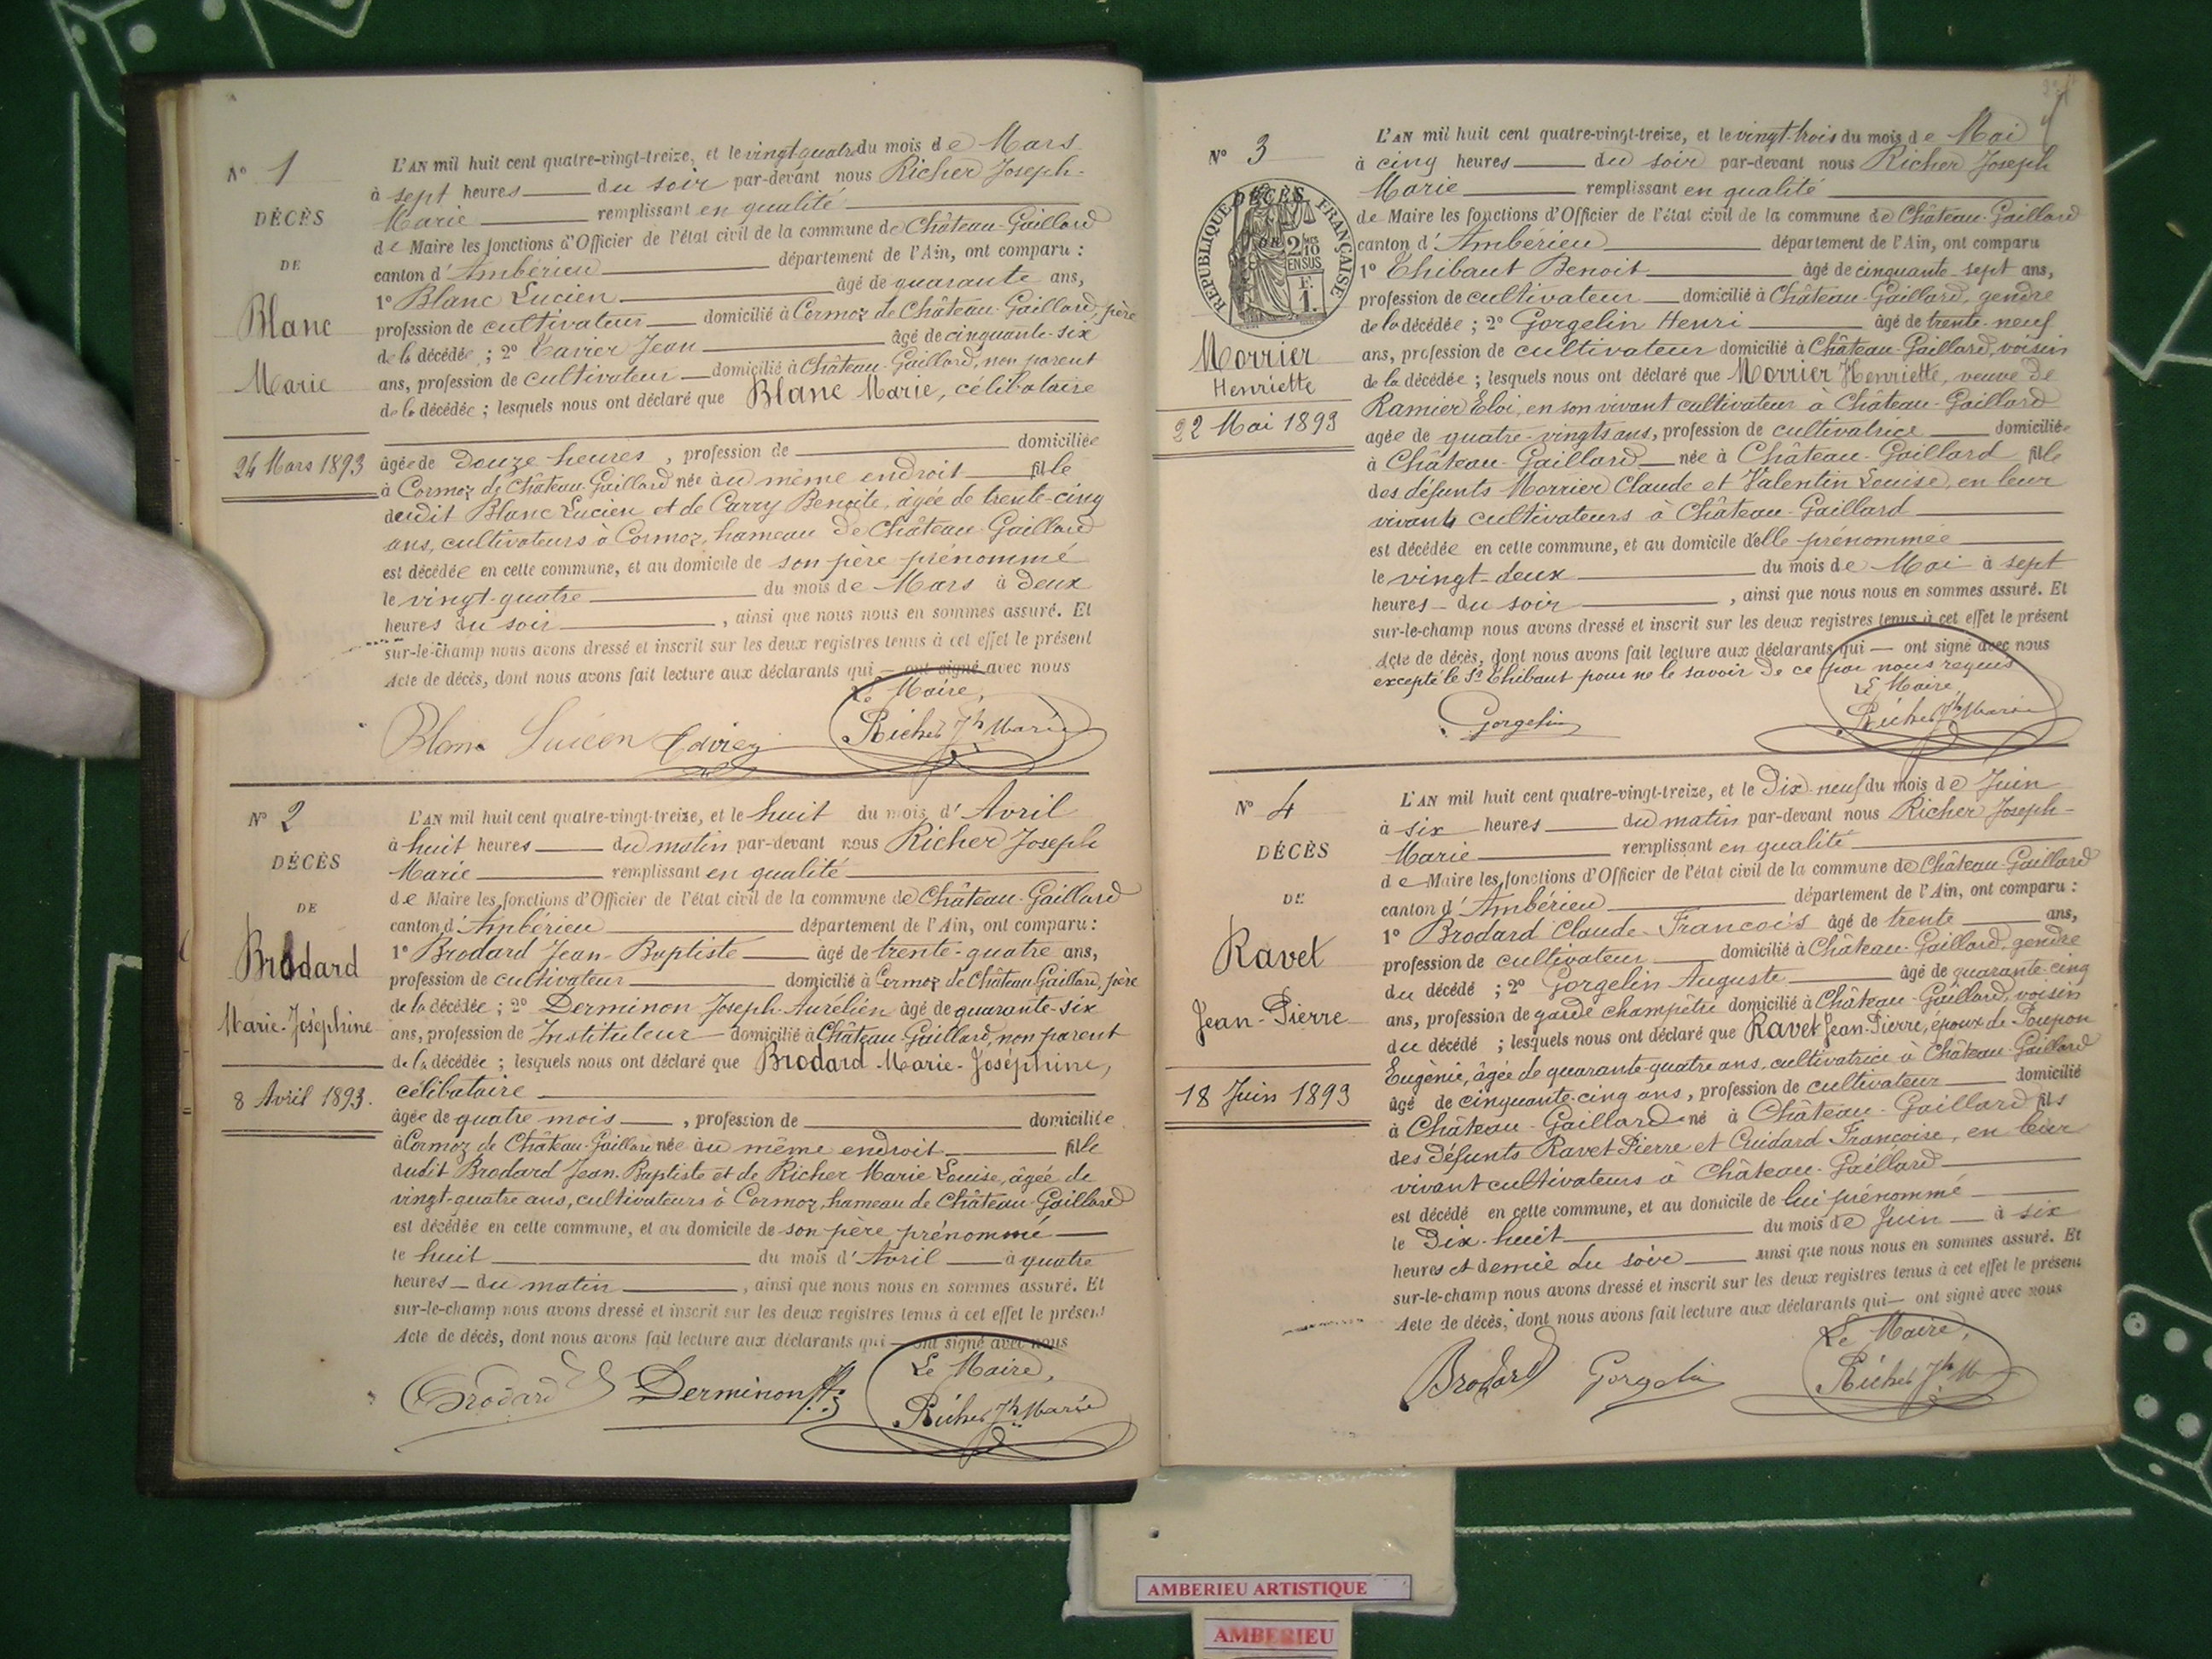 N° 1
DÉCÈS
DE
Blanc
Marie
24 Mars 1893
L'AN mil huit cent quatre-vingt-treize, et le vingt quatre du mois de Mars
à sept heures du soir par-devant nous Richer Joseph-
Marie remplissant en qualité
de Maire les fonctions d'Officier de l'état civil de la commune de Château-Gaillard
canton d'Ambérieu département de l'Ain, ont comparu :
1° Blanc Lucien âgé de quarante ans,
profession de cultivateur domicilié à Cormoz de Château-Gaillard, père
de la décédée ; 2° Tavier Jean âgé de cinquante-six
ans, profession de cultivateur domicilié à Château-Gaillard, non parent
de la décédée ; lesquels nous ont déclaré que Blanc Marie, célibataire
âgée de Douze heures, profession de domiciliée
à Cormoz de Château-Gaillard née au même endroit fille
dudit Blanc Lucien et de Carry Benoite, âgée de trente-cinq
ans, cultivateurs à Cormoz, hameau de Château-Gaillard
est décédée en cette commune, et au domicile de son père prénommé
le vingt-quatre du mois de Mars à deux
heures du soir, ainsi que nous nous en sommes assuré. Et
sur-le-champ nous avons dressé et inscrit sur les deux registres tenus à cet effet le présent
Acte de décès, dont nous avons fait lecture aux déclarants qui — ont signé avec nous
Le Maire,
Blanc Lucien Tavier Richer Jh Marie
N° 2
DÉCÈS
DE
Brodard
Marie-Joséphine
8 Avril 1893.
L'AN mil huit cent quatre-vingt-treize, et le huit du mois d'Avril
à huit heures du matin par-devant nous Richer Joseph
Marie remplissant en qualité
de Maire les fonctions d'Officier de l'état civil de la commune de Château-Gaillard
canton d'Ambérieu département de l'Ain, ont comparu :
1° Brodard Jean-Baptiste âgé de trente-quatre ans,
profession de cultivateur domicilié à Cormoz de Château-Gaillard, père
de la décédée ; 2° Derminon Joseph-Aurélien âgé de quarante-six
ans, profession de Instituteur domicilié à Château-Gaillard, non parent
de la décédée ; lesquels nous ont déclaré que Brodard Marie-Joséphine,
célibataire
âgée de quatre mois, profession de domiciliée
à Cormoz de Château-Gaillard née au même endroit fille
dudit Brodard Jean-Baptiste et de Richer Marie Louise, âgée de
vingt-quatre ans, cultivateurs à Cormoz, hameau de Château-Gaillard
est décédée en cette commune, et au domicile de son père prénommé
le huit du mois d'Avril à quatre
heures du matin, ainsi que nous nous en sommes assuré. Et
sur-le-champ nous avons dressé et inscrit sur les deux registres tenus à cet effet le présent
Acte de décès, dont nous avons fait lecture aux déclarants qui — ont signé avec nous
Le Maire,
Brodard Derminon Richer Jh Marie
N° 3
DÉCÈS
DE
RÉPUBLIQUE FRANÇAISE
2/10 EN SUS
F. 1.
Morrier
Henriette
22 Mai 1893
L'AN mil huit cent quatre-vingt-treize, et le vingt-trois du mois de Mai
à cinq heures du soir par-devant nous Richer Joseph
Marie remplissant en qualité
de Maire les fonctions d'Officier de l'état civil de la commune de Château-Gaillard
canton d'Ambérieu département de l'Ain, ont comparu
1° Thibaut Benoit âgé de cinquante-sept ans,
profession de cultivateur domicilié à Château-Gaillard, gendre
de la décédée ; 2° Gorgelin Henri âgé de trente-neuf
ans, profession de cultivateur domicilié à Château-Gaillard, voisin
de la décédée ; lesquels nous ont déclaré que Morrier Henriette, veuve de
Ramier Eloi, en son vivant cultivateur à Château-Gaillard
agée de quatre-vingts ans, profession de cultivatrice domiciliée
à Château-Gaillard née à Château-Gaillard fille
des défunts Morrier Claude et Valentin Louise, en leur
vivant cultivateurs à Château-Gaillard
est décédée en cette commune, et au domicile d'elle prénommée
le vingt-deux du mois de Mai à sept
heures du soir, ainsi que nous nous en sommes assuré. Et
sur-le-champ nous avons dressé et inscrit sur les deux registres tenus à cet effet le présent
Acte de décès, dont nous avons fait lecture aux déclarants qui — ont signé avec nous
excepté le Sr Thibaut pour ne le savoir de ce par nous requis
Le Maire,
Gorgelin Richer Jh Marie
N° 4
DÉCÈS
DE
Ravet
Jean-Pierre
18 Juin 1893
L'AN mil huit cent quatre-vingt-treize, et le Dix-neuf du mois de Juin
à six heures du matin par-devant nous Richer Joseph-
Marie remplissant en qualité
de Maire les fonctions d'Officier de l'état civil de la commune de Château-Gaillard
canton d'Ambérieu département de l'Ain, ont comparu :
1° Brodard Claude-Francois âgé de trente ans,
profession de cultivateur domicilié à Château-Gaillard, gendre
du décédé ; 2° Gorgelin Auguste âgé de quarante-cinq
ans, profession de garde champêtre domicilié à Château-Gaillard, voisin
du décédé ; lesquels nous ont déclaré que Ravet Jean-Pierre, époux de Poupon
Eugènie, âgée de quarante-quatre ans, cultivatrice à Château-Gaillard
âgé de cinquante-cinq ans, profession de cultivateur domicilié
à Château-Gaillard né à Château-Gaillard fils
des défunts Ravet Pierre et Cuidard Françoise, en leur
vivant cultivateurs à Château-Gaillard
est décédé en cette commune, et au domicile de lui prénommé
le Dix-huit du mois de Juin à six
heures et demie du soir ainsi que nous nous en sommes assuré. Et
sur-le-champ nous avons dressé et inscrit sur les deux registres tenus à cet effet le présent
Acte de décès, dont nous avons fait lecture aux déclarants qui — ont signé avec nous
Le Maire,
Brodard Gorgelin Richer Jh M
AMBERIEU ARTISTIQUE
AMBERIEU